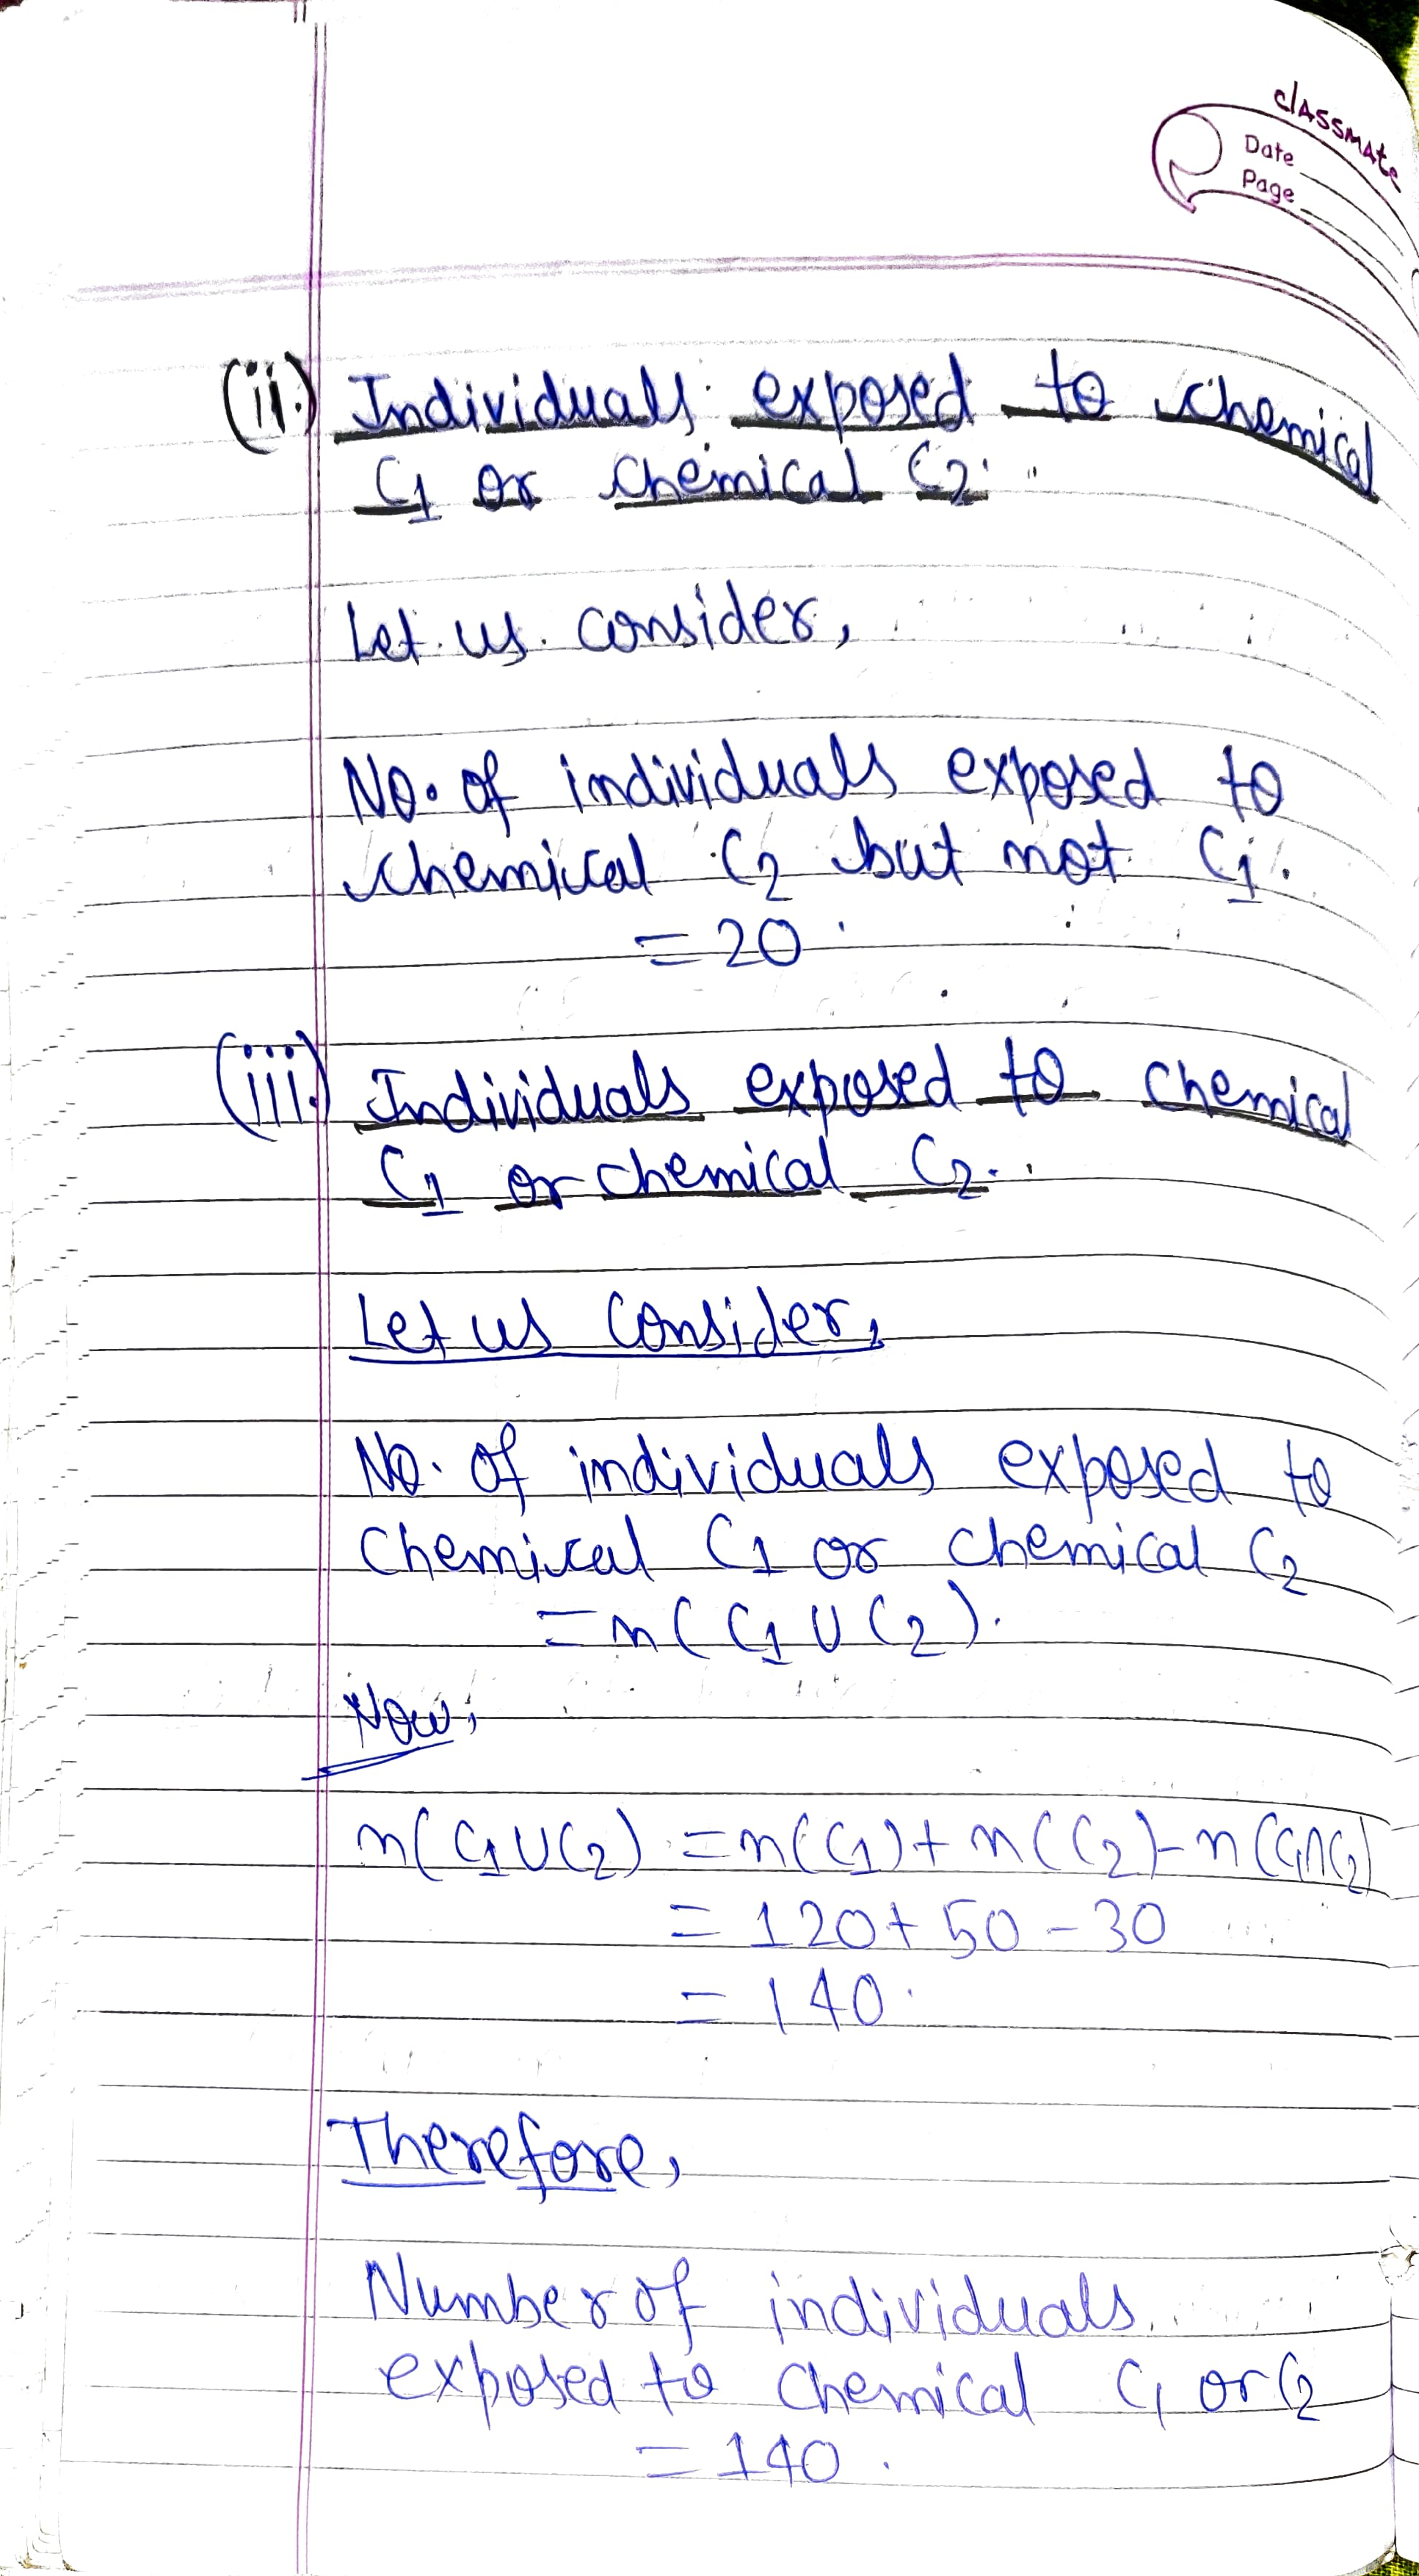 classmate
Date
Page
(ii.) Individuals exposed to chemical
C1 or chemical C2.
Let us consider,
No. of individuals exposed to
chemical C2 but not C1.
= 20
(iii.) Individuals exposed to chemical
C1 or chemical C2.
Let us consider,
No. of individuals exposed to
Chemical C1 or chemical C2
= n(C1 ∪ C2).
Now,
n(C1∪C2) = n(C1) + n(C2) - n(C1∩C2)
= 120 + 50 - 30
= 140.
Therefore,
Number of individuals
exposed to chemical C1 or C2
= 140.